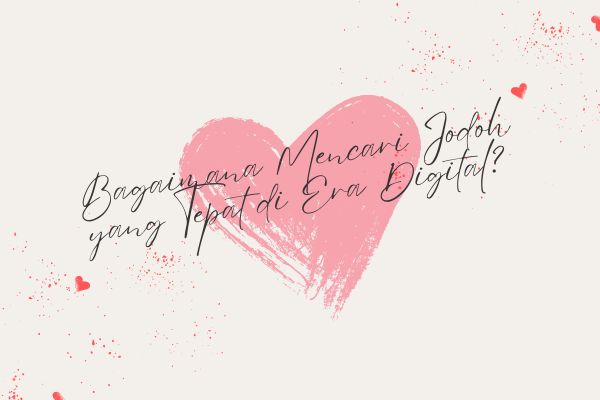 Bagaimana Mencari Jodoh
yang Tepat di Era Digital?